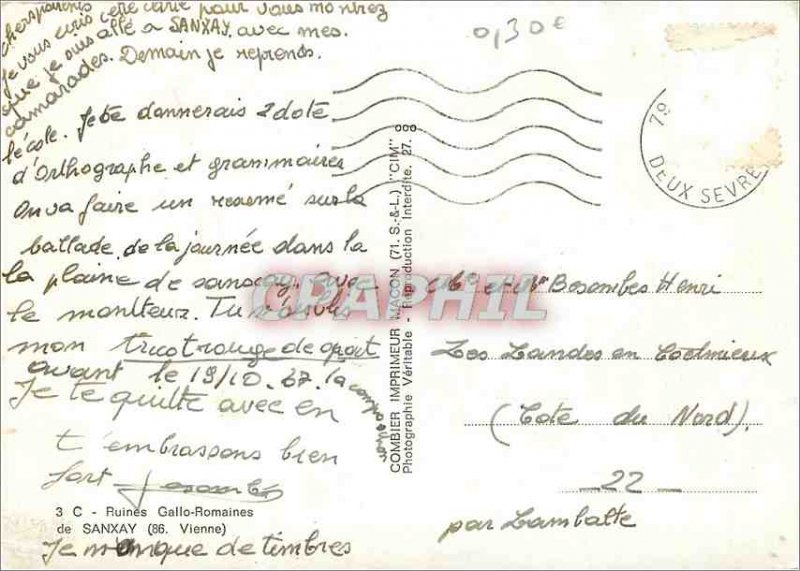 chers parents
Je vous écris cette carte pour vous montrez
que je suis allé a SANXAY. avec mes.
camarades. Demain je reprends.
l'école. Je te donnerais 2 dote
d'Orthographe et grammaires
On va faire un résumé sur la
ballade de la journée dans la
la plaine de sanxay. avec
le moniteur. Tu m'
mon tricot rouge de sport
avant le 19/10.67. la
Je te quitte avec en
t'embrassons bien
fort
3 C - Ruines Gallo-Romaines
de SANXAY (86. Vienne)
Je manque de timbres
0,30€
79
DEUX SEVRE
COMBIER IMPRIMEUR MACON (71. S.-&-L.) "CIM"
Photographie Véritable - Reproduction Interdite. 27.
CPAPHIL
Mr et Me Besombes Henri
Les Landes en Coëtmieux
(Cote du Nord).
22
par Lamballe